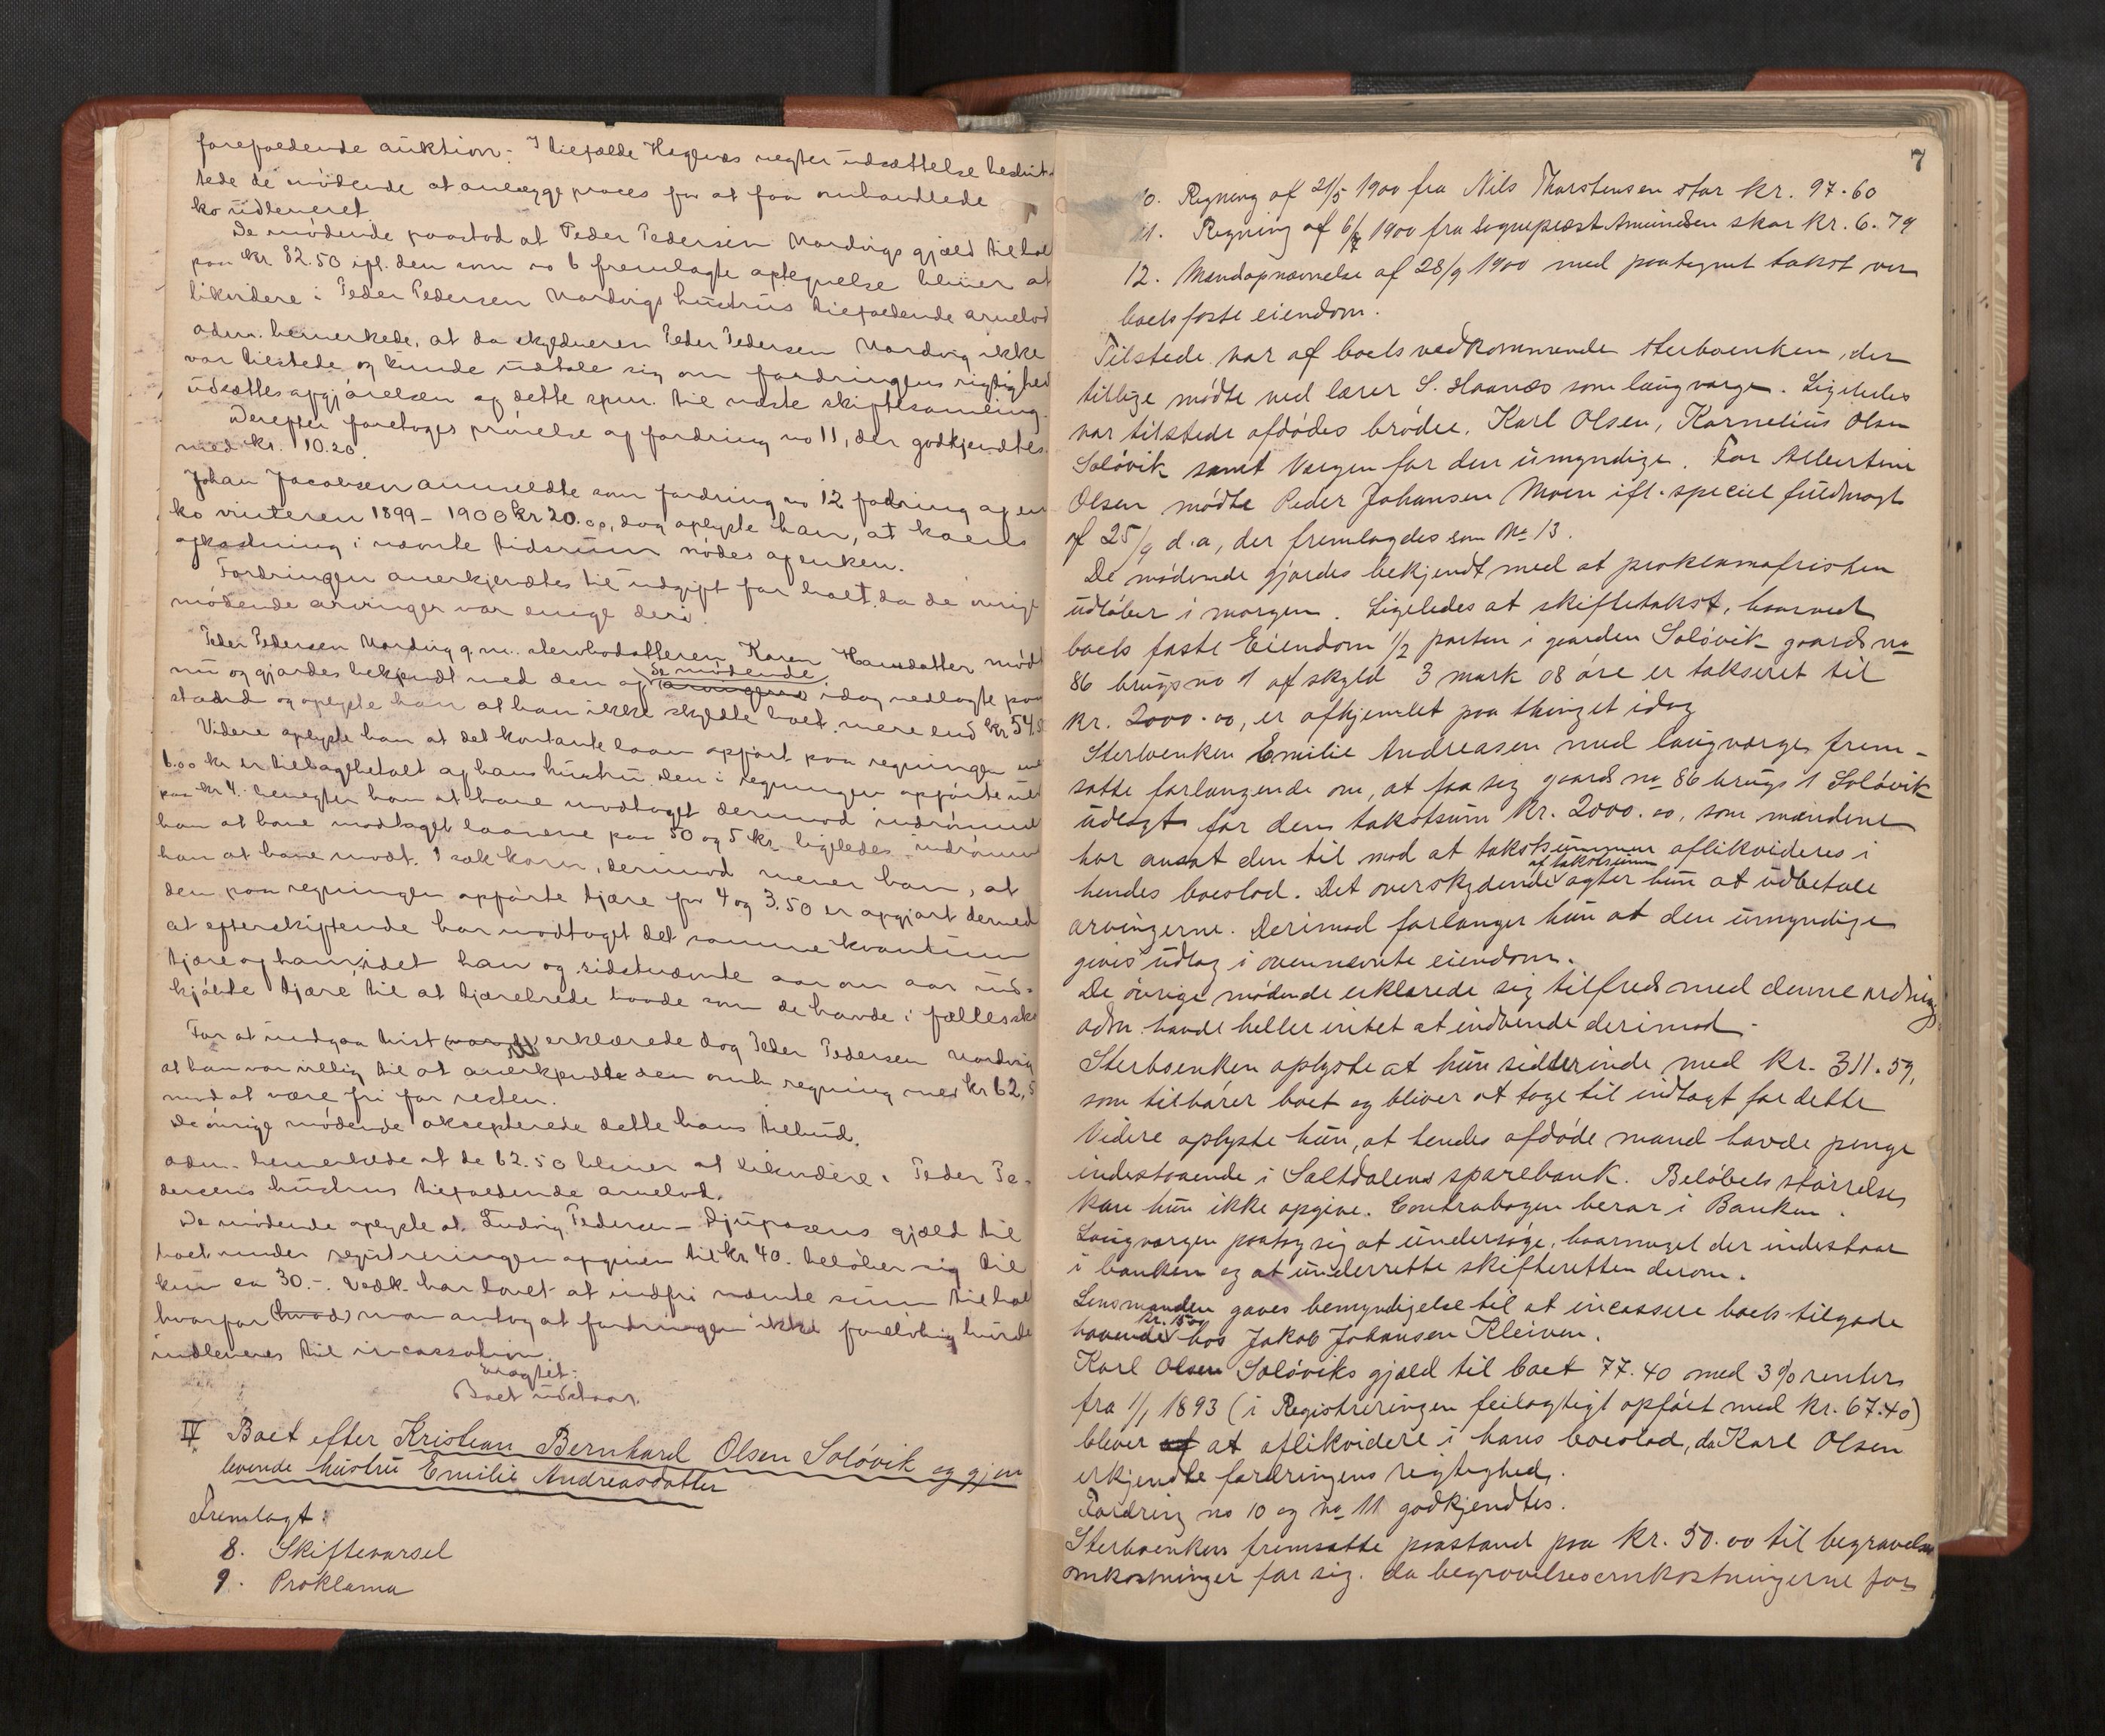 forefaldende auktion. I tilfælde Hagenæs negter udsættelse beslut-
tede de mødende at anlægge proces for at faa omhandlede
ko udleveret.
De mødende paastod at Peder Pedersen Nordvigs gjæld til boet
paa kr. 82.50 ifl. den som no 6 fremlagte optegnelse bliver at
likvidere i Peder Pedersen Nordvigs hustrus tilfaldende arvelod
adm. bemerkede, at da skyldneren Peder Pedersen Nordvig ikke
var tilstede og kunde udtale sig om fordringens rigtighed
udsættes afgjørelsen af dette spm. til næste skiftesamling.
Derefter foretoges prøvelse af fordring no 11, der godkjendtes
med kr. 10.20.
Johan Jacobsen anmeldte som fordring no 12 fodring af en
ko vinteren 1899-1900 kr 20.00, dog oplyste han, at koens
afkastning i nævnte tidsrum nødes af enken.
Fordringen anerkjendtes til udgift for boet, da de øvrige
mødende arvinger var enige deri.
Peder Pedersen Nordvig q. m. sterbodatteren Karen Hansdatter mødte
de mødende
nu og gjordes bekjendt med den af arvingerne idag nedlagte paa-
stand og oplyste han at han ikke skyldte boet mere end kr 54.
Videre oplyste han at det kontante laan opført paa regningen med
6.00 kr er tilbagebetalt af hans hustru. Den i regningen opførte uld
paa kr 4. benegter han at have modtaget derimod indrømmer
han at have modtaget laanene paa 50 og 5 kr. ligeledes indrømmer
han at have modt. 1 sæk korn, derimod mener han, at
den paa regningen opførte tjære for 4 og 3.50 er opgjort dermed
at efterskiftende har modtaget det samme kvantum
tjære af ham, idet han og sidstnævnte aar om aar ind-
kjøbte tjære til at tjærebrede baade som de havde i fællesskab
For at undgaa tvist erklærede dog Peder Pedersen Nordvig
at han var villig til at anerkjendte den omh. regning med kr 62,5
mod at være fri for resten.
De øvrige mødende aksepterede dette hans tilbud.
adm. bemerkede at de 62.50 bliver at likvidere i Peder Pe-
dersens hustrus tilfaldende arvelod.
De mødende oplyste at Ludvig Pedersen Djupaaens gjæld til
boet under registreringen opgiven til kr 40. beløber sig til
kun ca 30.-. Vedk. har lovet at indfri nævnte sum til boet
hvorfor (hvad) man antog at fordringen ikke foreløbig burde
indleveres til incassation.
Eragtet:
Boet udstaar.
IV Boet efter Kristian Bernhard Olsen Soløvik og gjen
levende hustru Emilie Andreasdatter
Fremlagt:
8. Skiftevarsel
9. Proklama
7
10. Regning af 21/5 1900 fra Nils Thorstensen stor kr. 97.60
11. Regning af 6/7 1900 fra sogneprest Amundsen stor kr. 6.79
12. Mandopnævnelse af 28/9 1900 med paategnet takst over
boets faste eiendom.
Tilstede var af boets vedkommende sterboenken, der
tillige mødte med lærer S. Haanæs som laugværge. Ligeledes
var tilstede afdødes brødre, Karl Olsen, Kornelius Olsen
Soløvik samt Vergen for den umyndige. For Albertine
Olsen mødte Peder Johansen Moen ifl. speciel fuldmagt
af 25/9 d.a, der fremlagdes som No 13.
De mødende gjordes bekjendt med at proklamafristen
udløber i morgen. Ligeledes at skiftetakst, hvorved
boets faste Eiendom 1/2 parten i gaarden Soløvik gaards no
86 brugs no 1 af skyld 3 mark 08 øre er takseret til
kr. 2000.00, er afhjemlet paa thinget idag
Sterboenken Emilie Andreasen med laugværge frem-
satte forlangende om, at faa sig gaards no 86 brugs 1 Soløvik
udlagt for dens takstsum kr. 2000.00, som mændene
har ansat den til mod at takstsummen aflikvideres i
af takstsummen
hendes boeslod. Det overskydende agter hun at udbetale
arvingerne. Derimod forlanger hun at den umyndige
gives udlæg i ovennævnte eiendom.
De øvrige mødende erklærede sig tilfreds med denne ordning
adm. havde heller intet at indvende derimod.
Sterboenken oplyste at hun sidder inde med kr. 311.59,
som tilhører boet og bliver at tage til indtægt for dette
Videre oplyste hun, at hendes afdøde mand havde penge
indestaaende i Saltdalens sparebank. Beløbets størrelse
kan hun ikke opgive. Contrabogen berør i Banken.
Laugværgen paatog sig at undersøge, hvormeget der indestaar
i banken og at underrette skifteretten derom.
Lensmanden gaves bemyndigelse til at incassere boets tilgode
kr. 15.00
havende hos Jakob Johansen Kleiven.
Karl Olsen Soløviks gjæld til boet 77.40 med 3% renter
fra 1/1 1893 (i Registreringen feilagtigt opført med kr. 67.40)
bliver af at aflikvidere i hans boeslod, da Karl Olsen
erkjendte fordringens rigtighed.
Fordring no 10 og no 11 godkjendtes.
Sterboenken fremsatte paastand paa kr. 50.00 til begravelses
omkostninger for sig. da begravelsesomkostningerne for